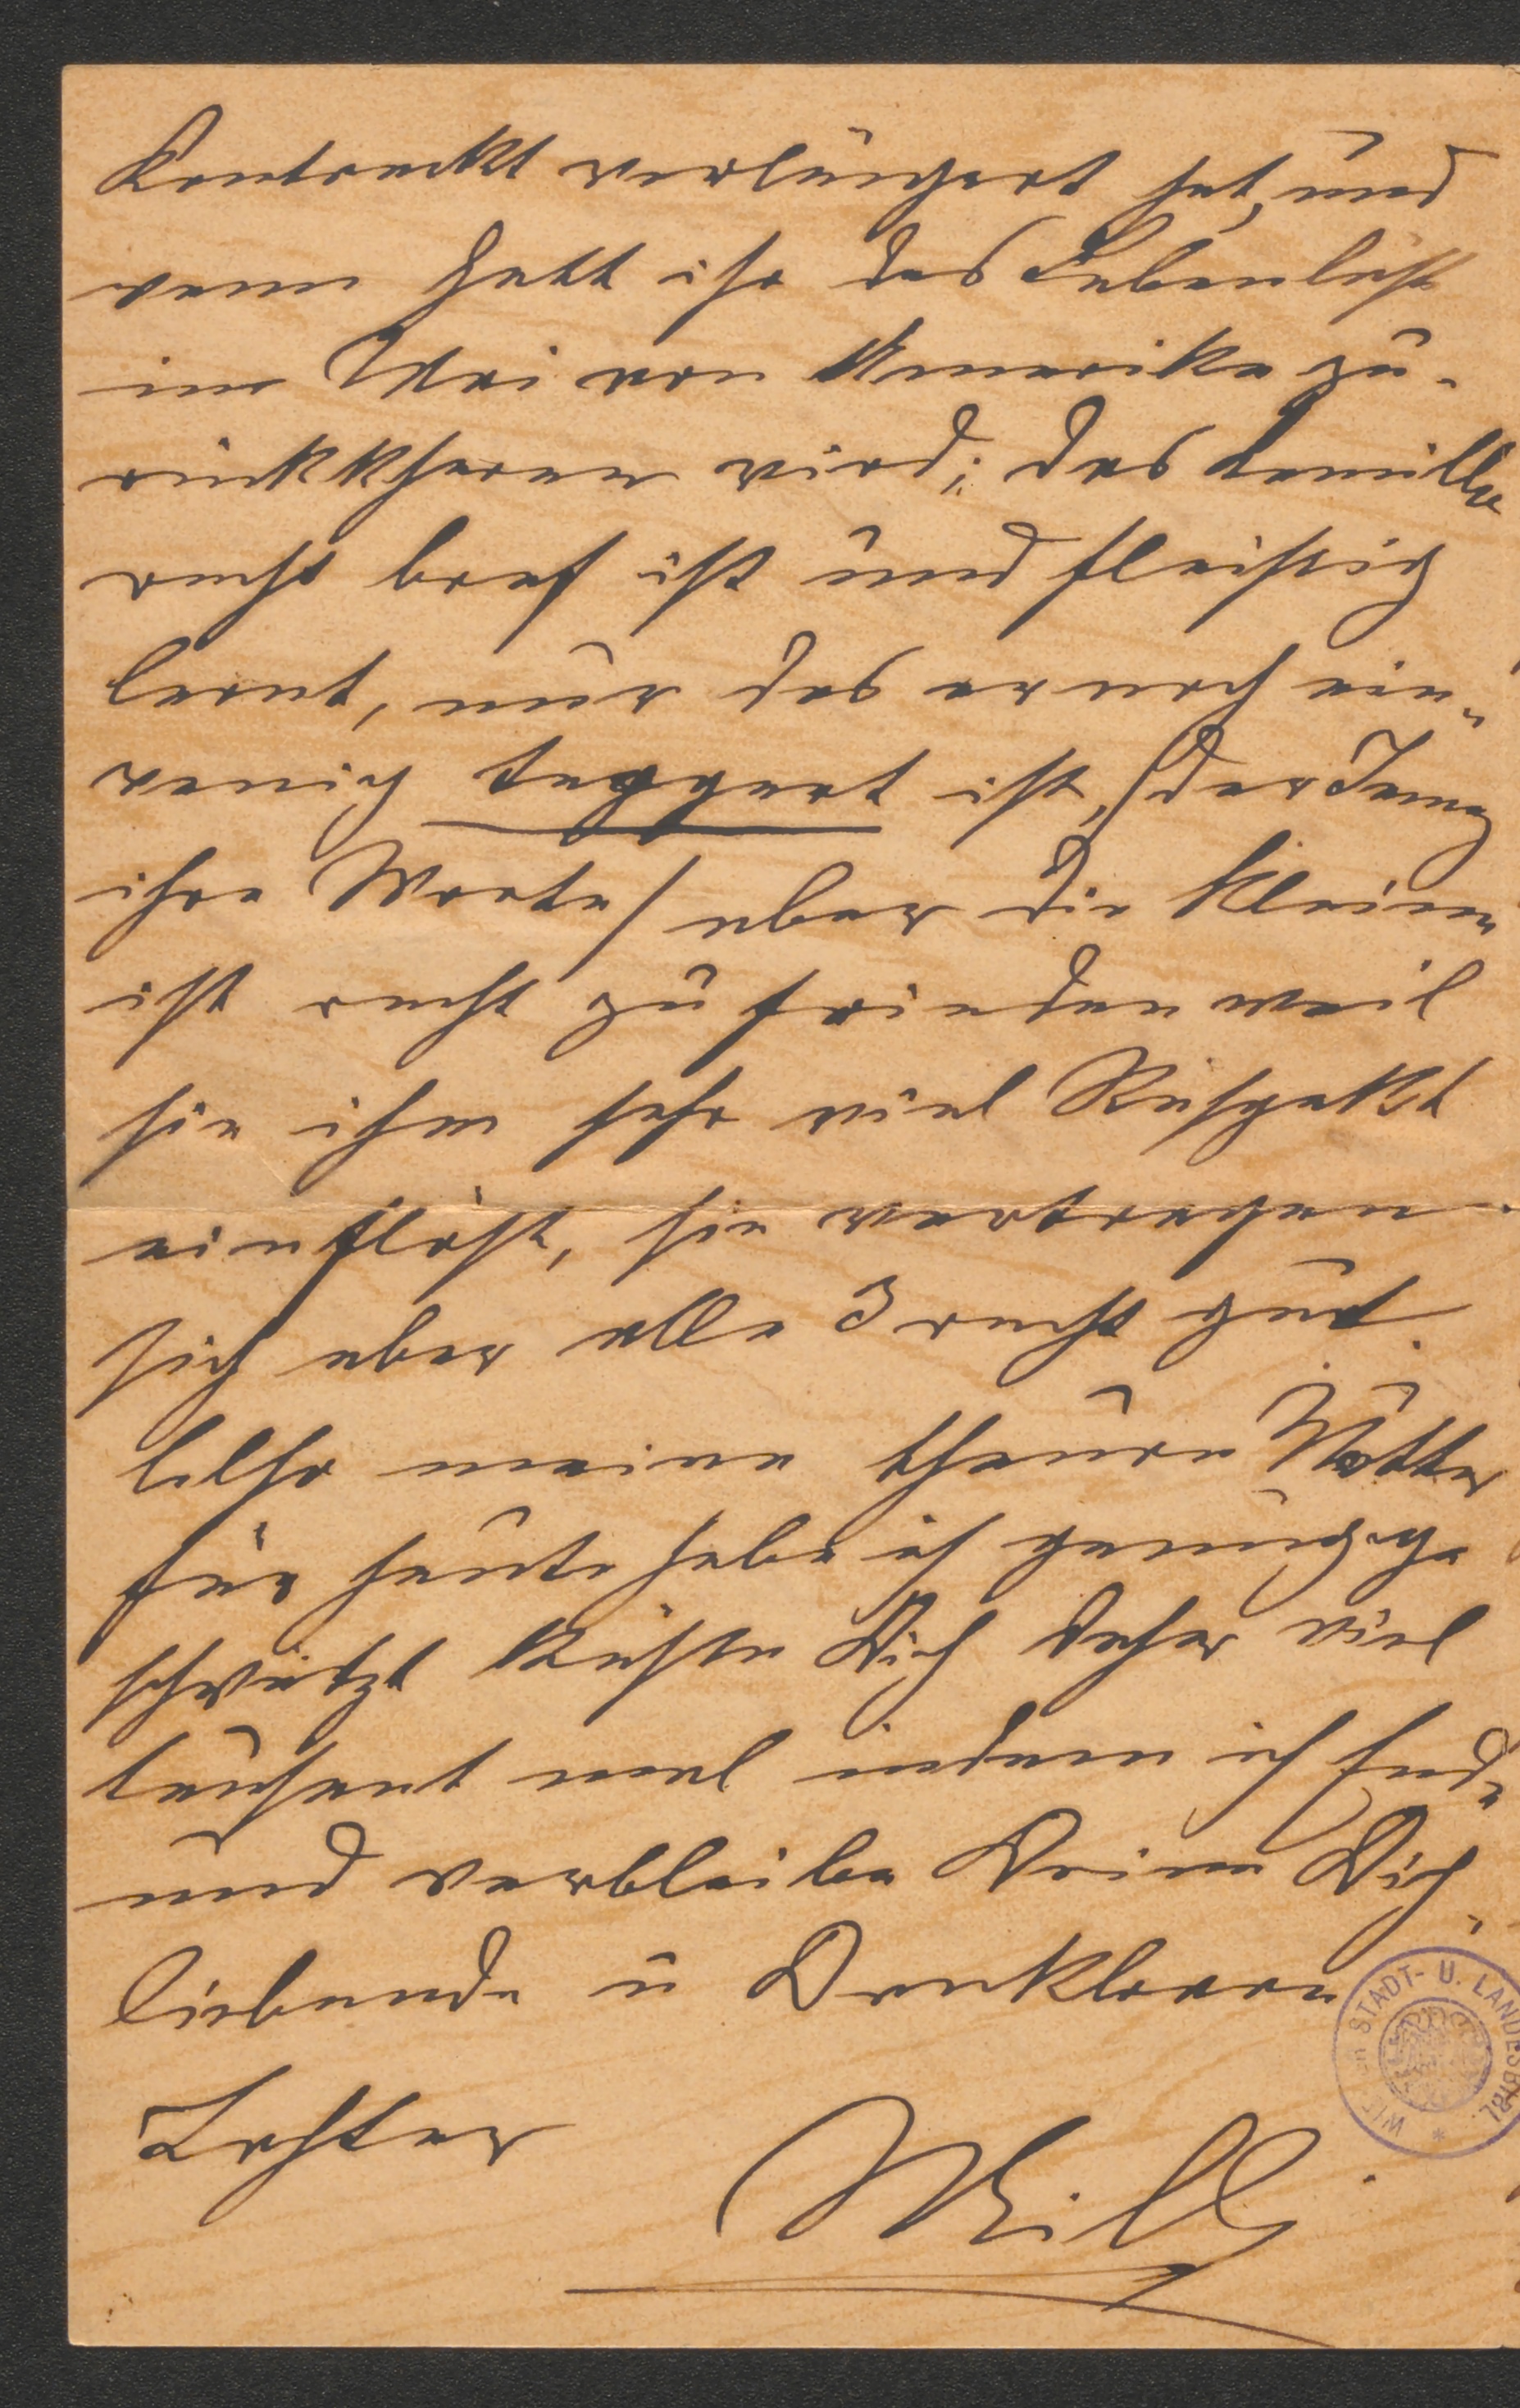 Kontrackt verlängert hat, und
wenn Gott ihr das Leben läßt
im Mai von Amerika zu-
rückkheren wird; das Camilla
recht braf ist und fleißig
lernt, nur das er noch ein
wenig teppert ist, /der Jenny
ihre Worte/ aber die Kleine
ist recht zufrieden weil
sie ihm sehr viel Respekt
einflößt, sie vertragen
sich aber alle 3 recht gut.
Also meine theure Mutter
für heute habe ich genug ge
schwätzt küße Dich daher viel
tausent mal indem ich ende
und verbleibe Deine Dich
liebende u Dankbare
Tochter
Milly
WIENER STADT- U. LANDESBIBL.